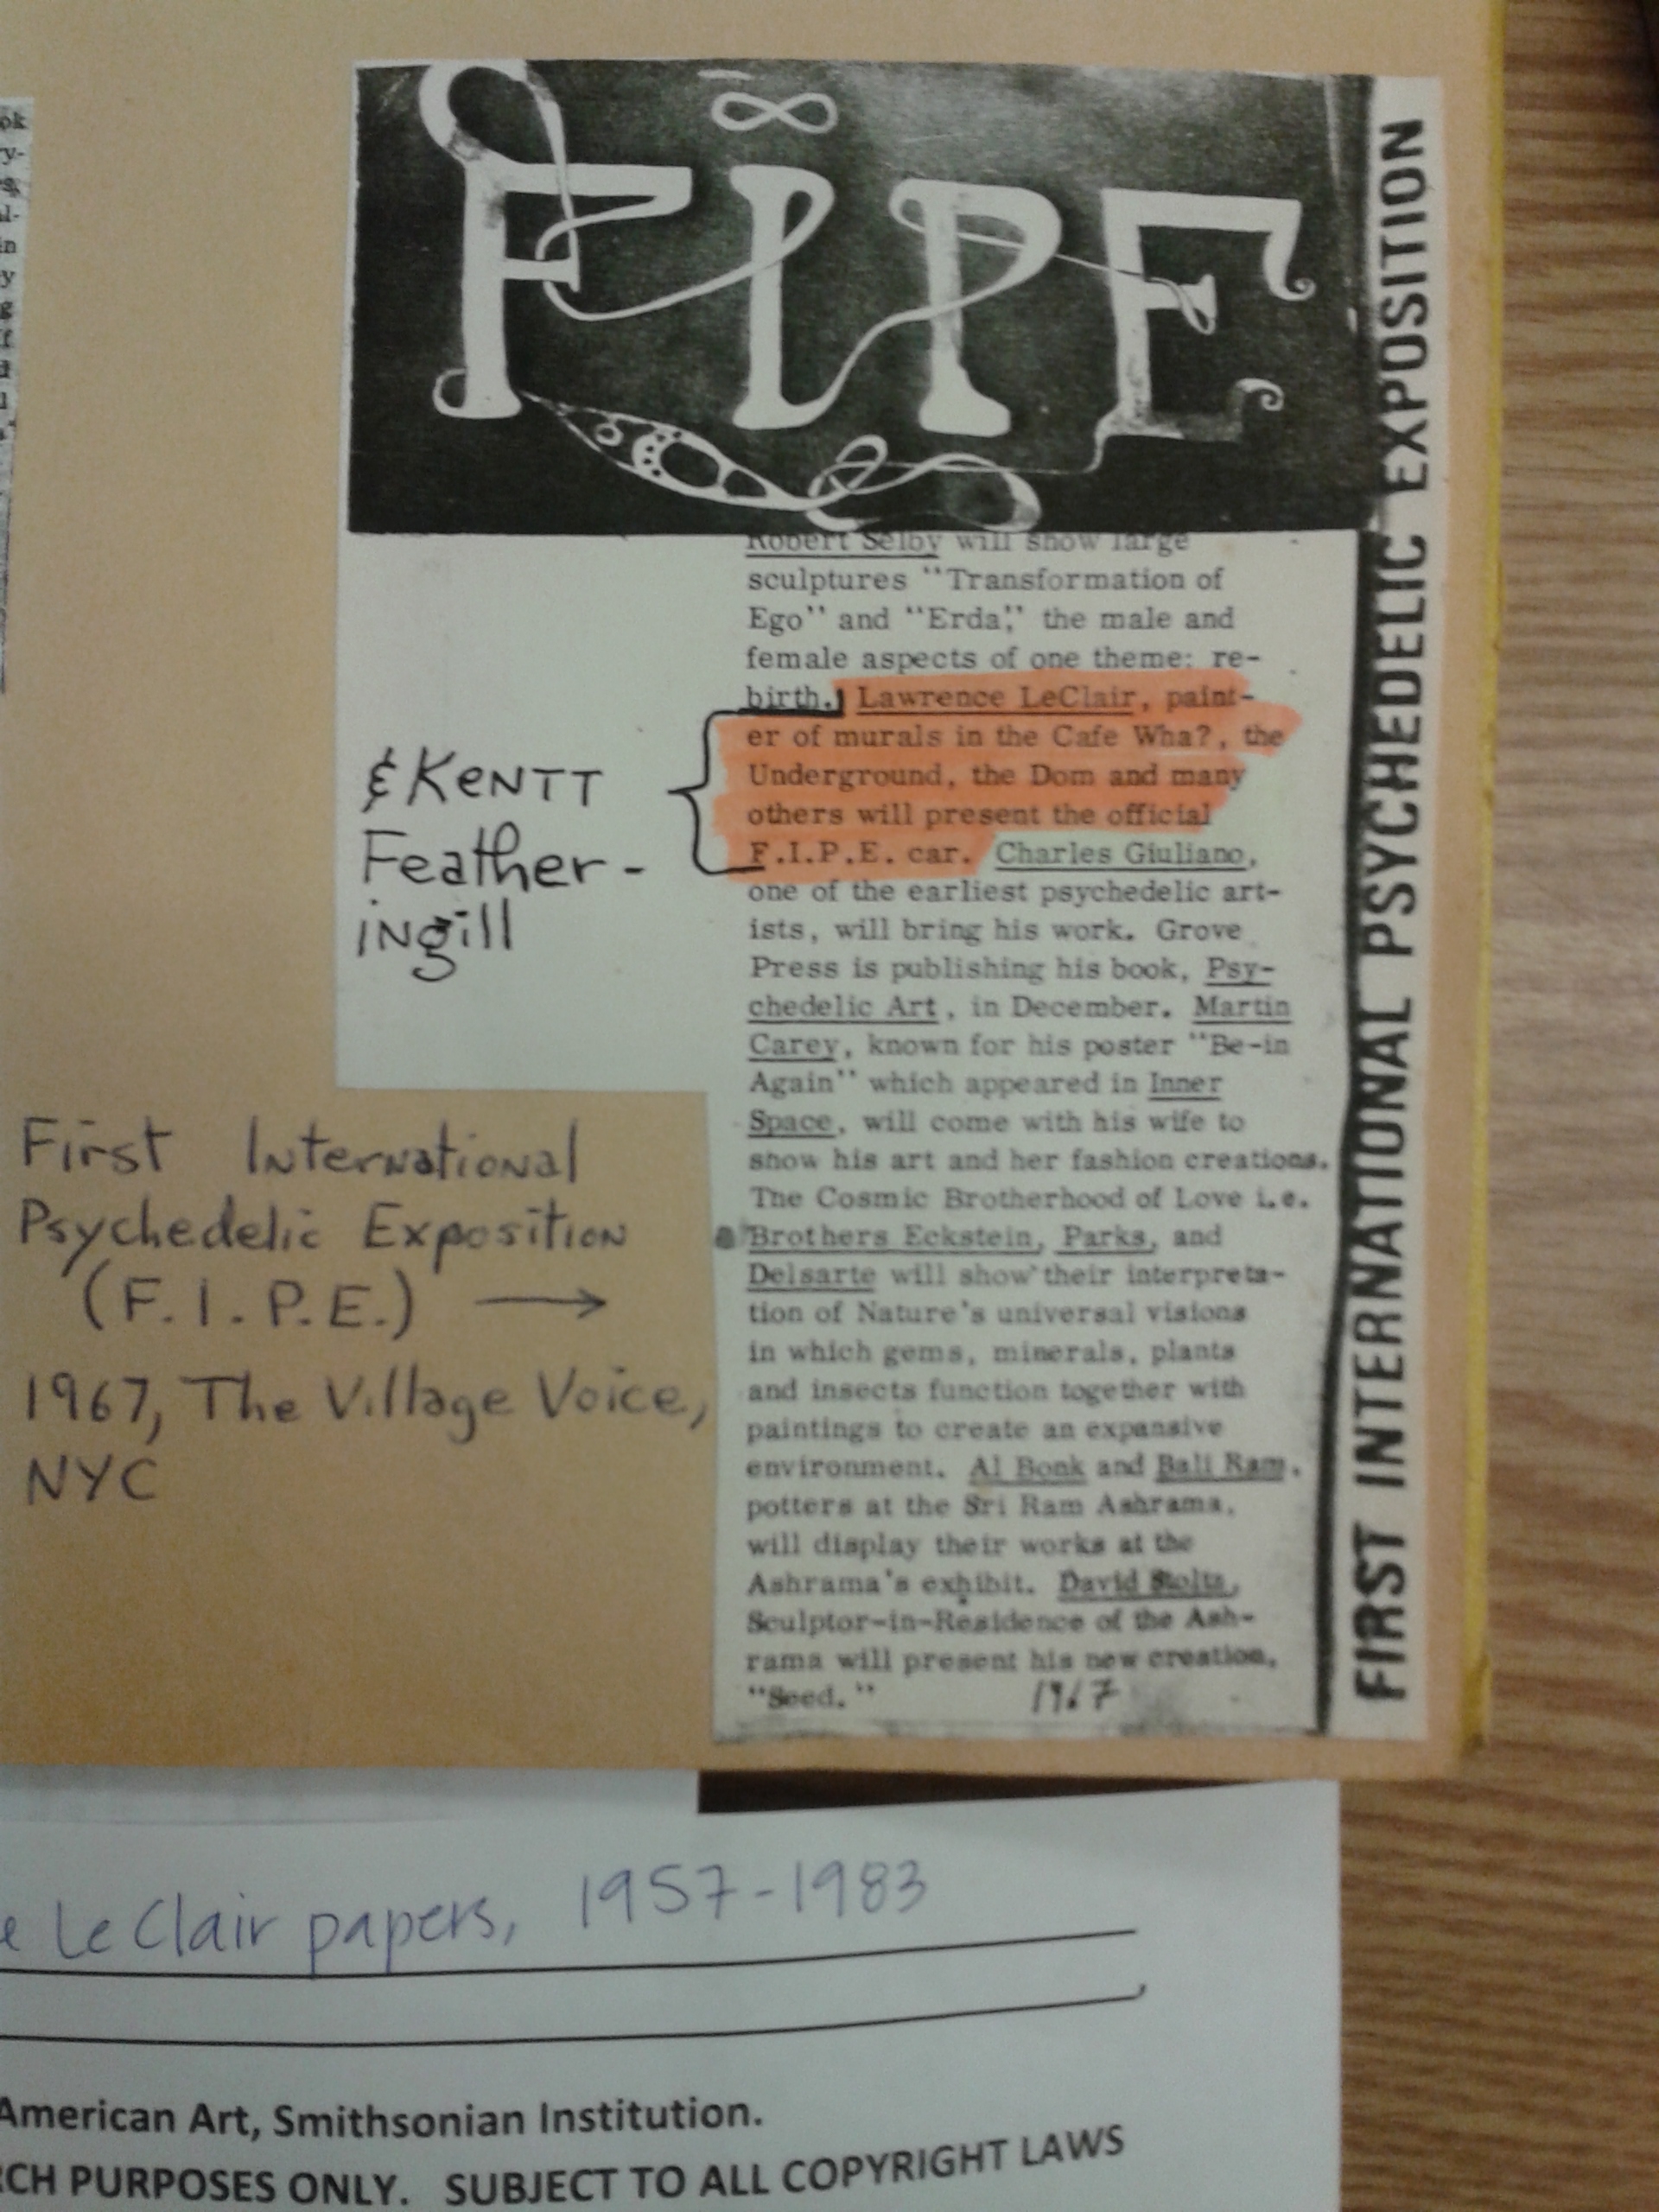 ok
ry-
es,
al-
in
y
g
f
d
l
FIPE
FIRST INTERNATIONAL PSYCHEDELIC EXPOSITION
Robert Selby will show large
sculptures "Transformation of
Ego" and "Erda," the male and
female aspects of one theme: re-
birth. Lawrence LeClair, paint-
er of murals in the Cafe Wha?, the
Underground, the Dom and many
others will present the official
F.I.P.E. car. Charles Giuliano,
one of the earliest psychedelic art-
ists, will bring his work. Grove
Press is publishing his book, Psy-
chedelic Art, in December. Martin
Carey, known for his poster "Be-in
Again" which appeared in Inner
Space, will come with his wife to
show his art and her fashion creations.
The Cosmic Brotherhood of Love i.e.
Brothers Eckstein, Parks, and
Delsarte will show their interpreta-
tion of Nature's universal visions
in which gems, minerals, plants
and insects function together with
paintings to create an expansive
environment. Al Bonk and Bali Ram,
potters at the Sri Ram Ashrama,
will display their works at the
Ashrama's exhibit. David Stoltz,
Sculptor-in-Residence of the Ash-
rama will present his new creation,
"Seed." 1967
& KENTT
Feather-
ingill
First International
Psychedelic Exposition
(F.I.P.E.) →
1967, The Village Voice,
NYC
e LeClair papers, 1957-1983
American Art, Smithsonian Institution.
RCH PURPOSES ONLY. SUBJECT TO ALL COPYRIGHT LAWS